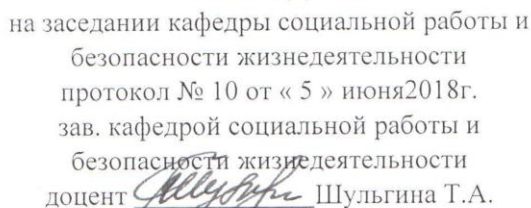 на заседании кафедры социальной работы и
безопасности жизнедеятельности
протокол № 10 от « 5 » июня2018г.
зав. кафедрой социальной работы и
безопасности жизнедеятельности
доцент Шульгина Т.А.